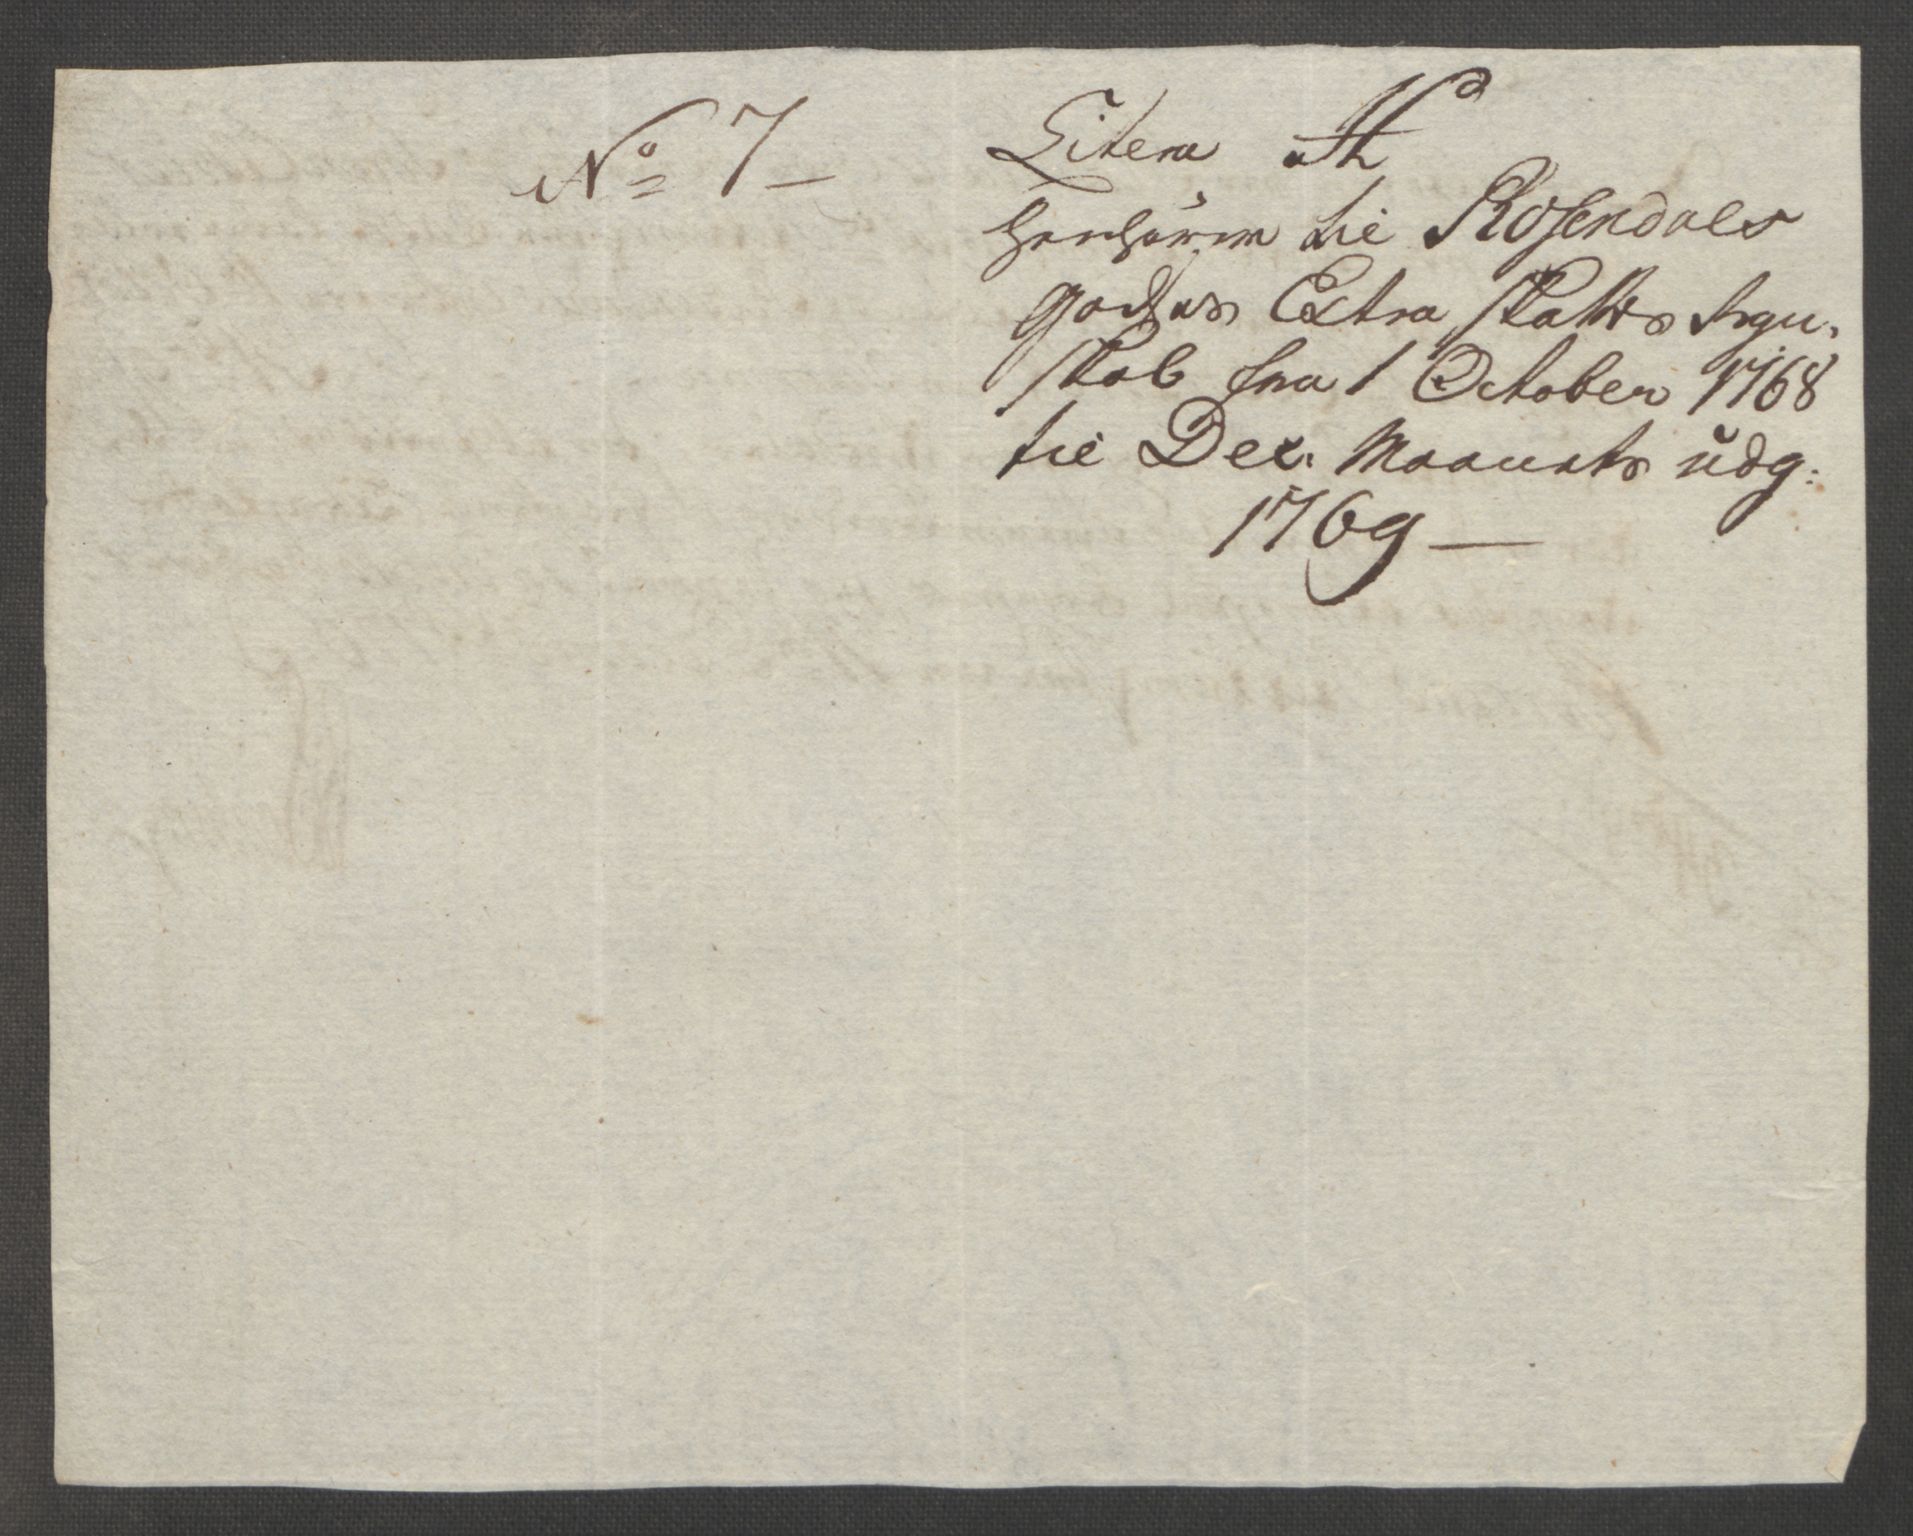 No 7
Litera H
henhörer til Rosendals
godses Extra skatts regn-
skab fra 1 October 1768
til Dec. Maanets udg:
1769